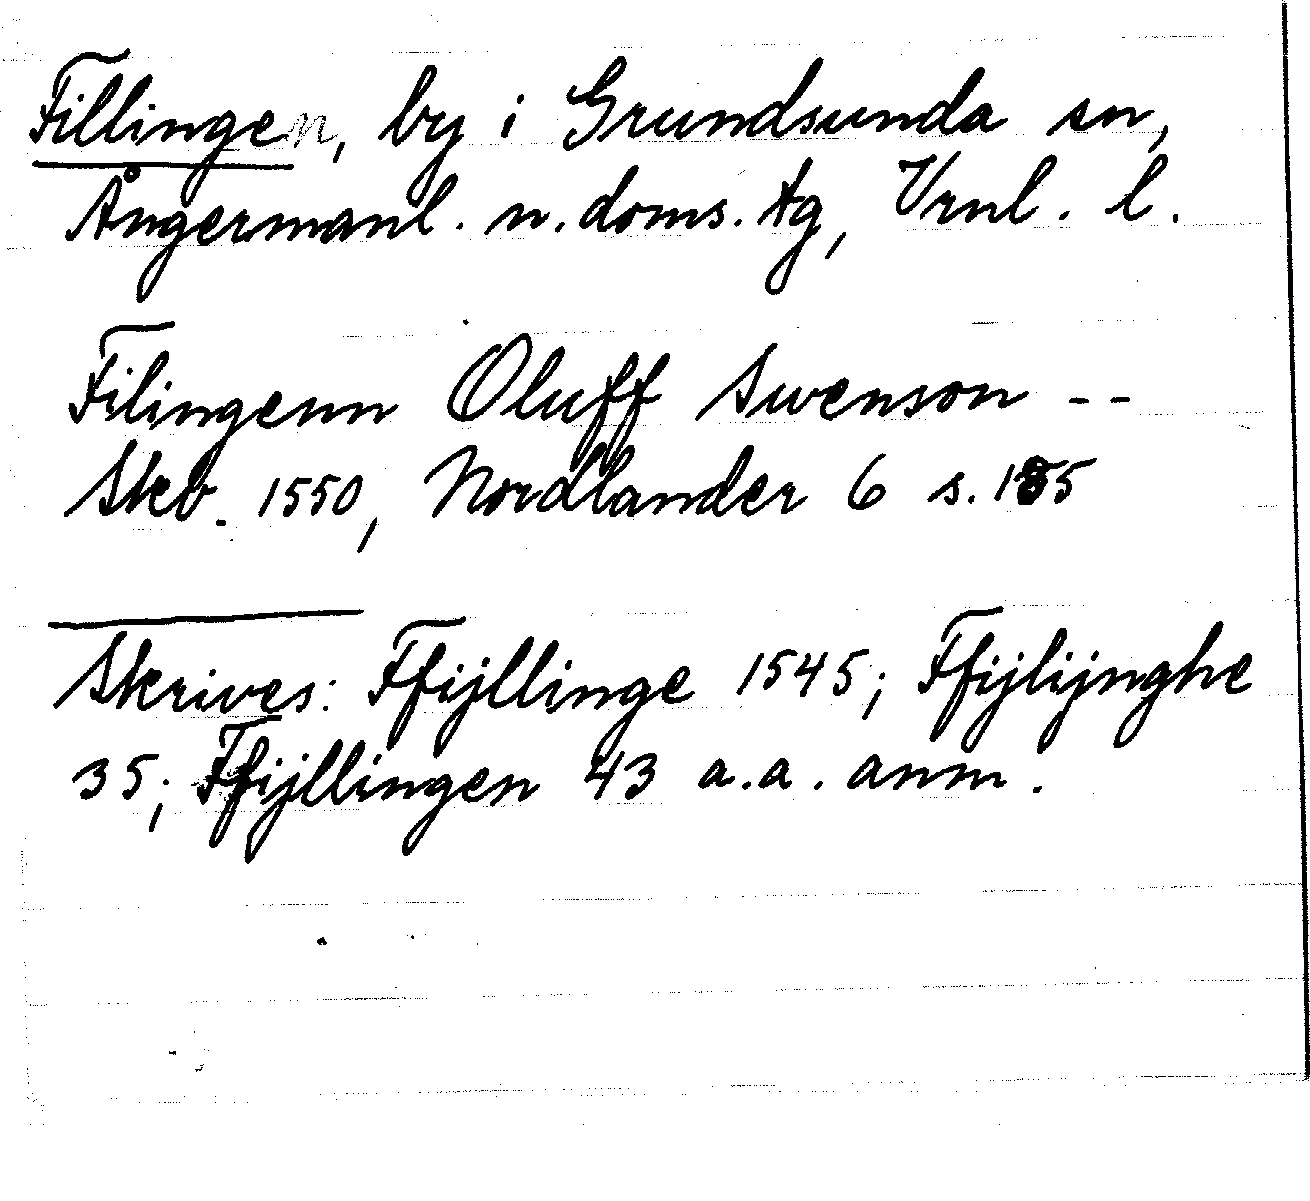 Fillingen, by i Grundsunda sn,
Ångermanl. n. doms. tg, Vrnl. l.
Filingenn Oluff Swenson --
Skeb. 1550, Nordlander 6 s. 185
Skrives: Ffijllinge 1545; Ffijlijnghe
35; Ffijllingen 43 a.a. anm.